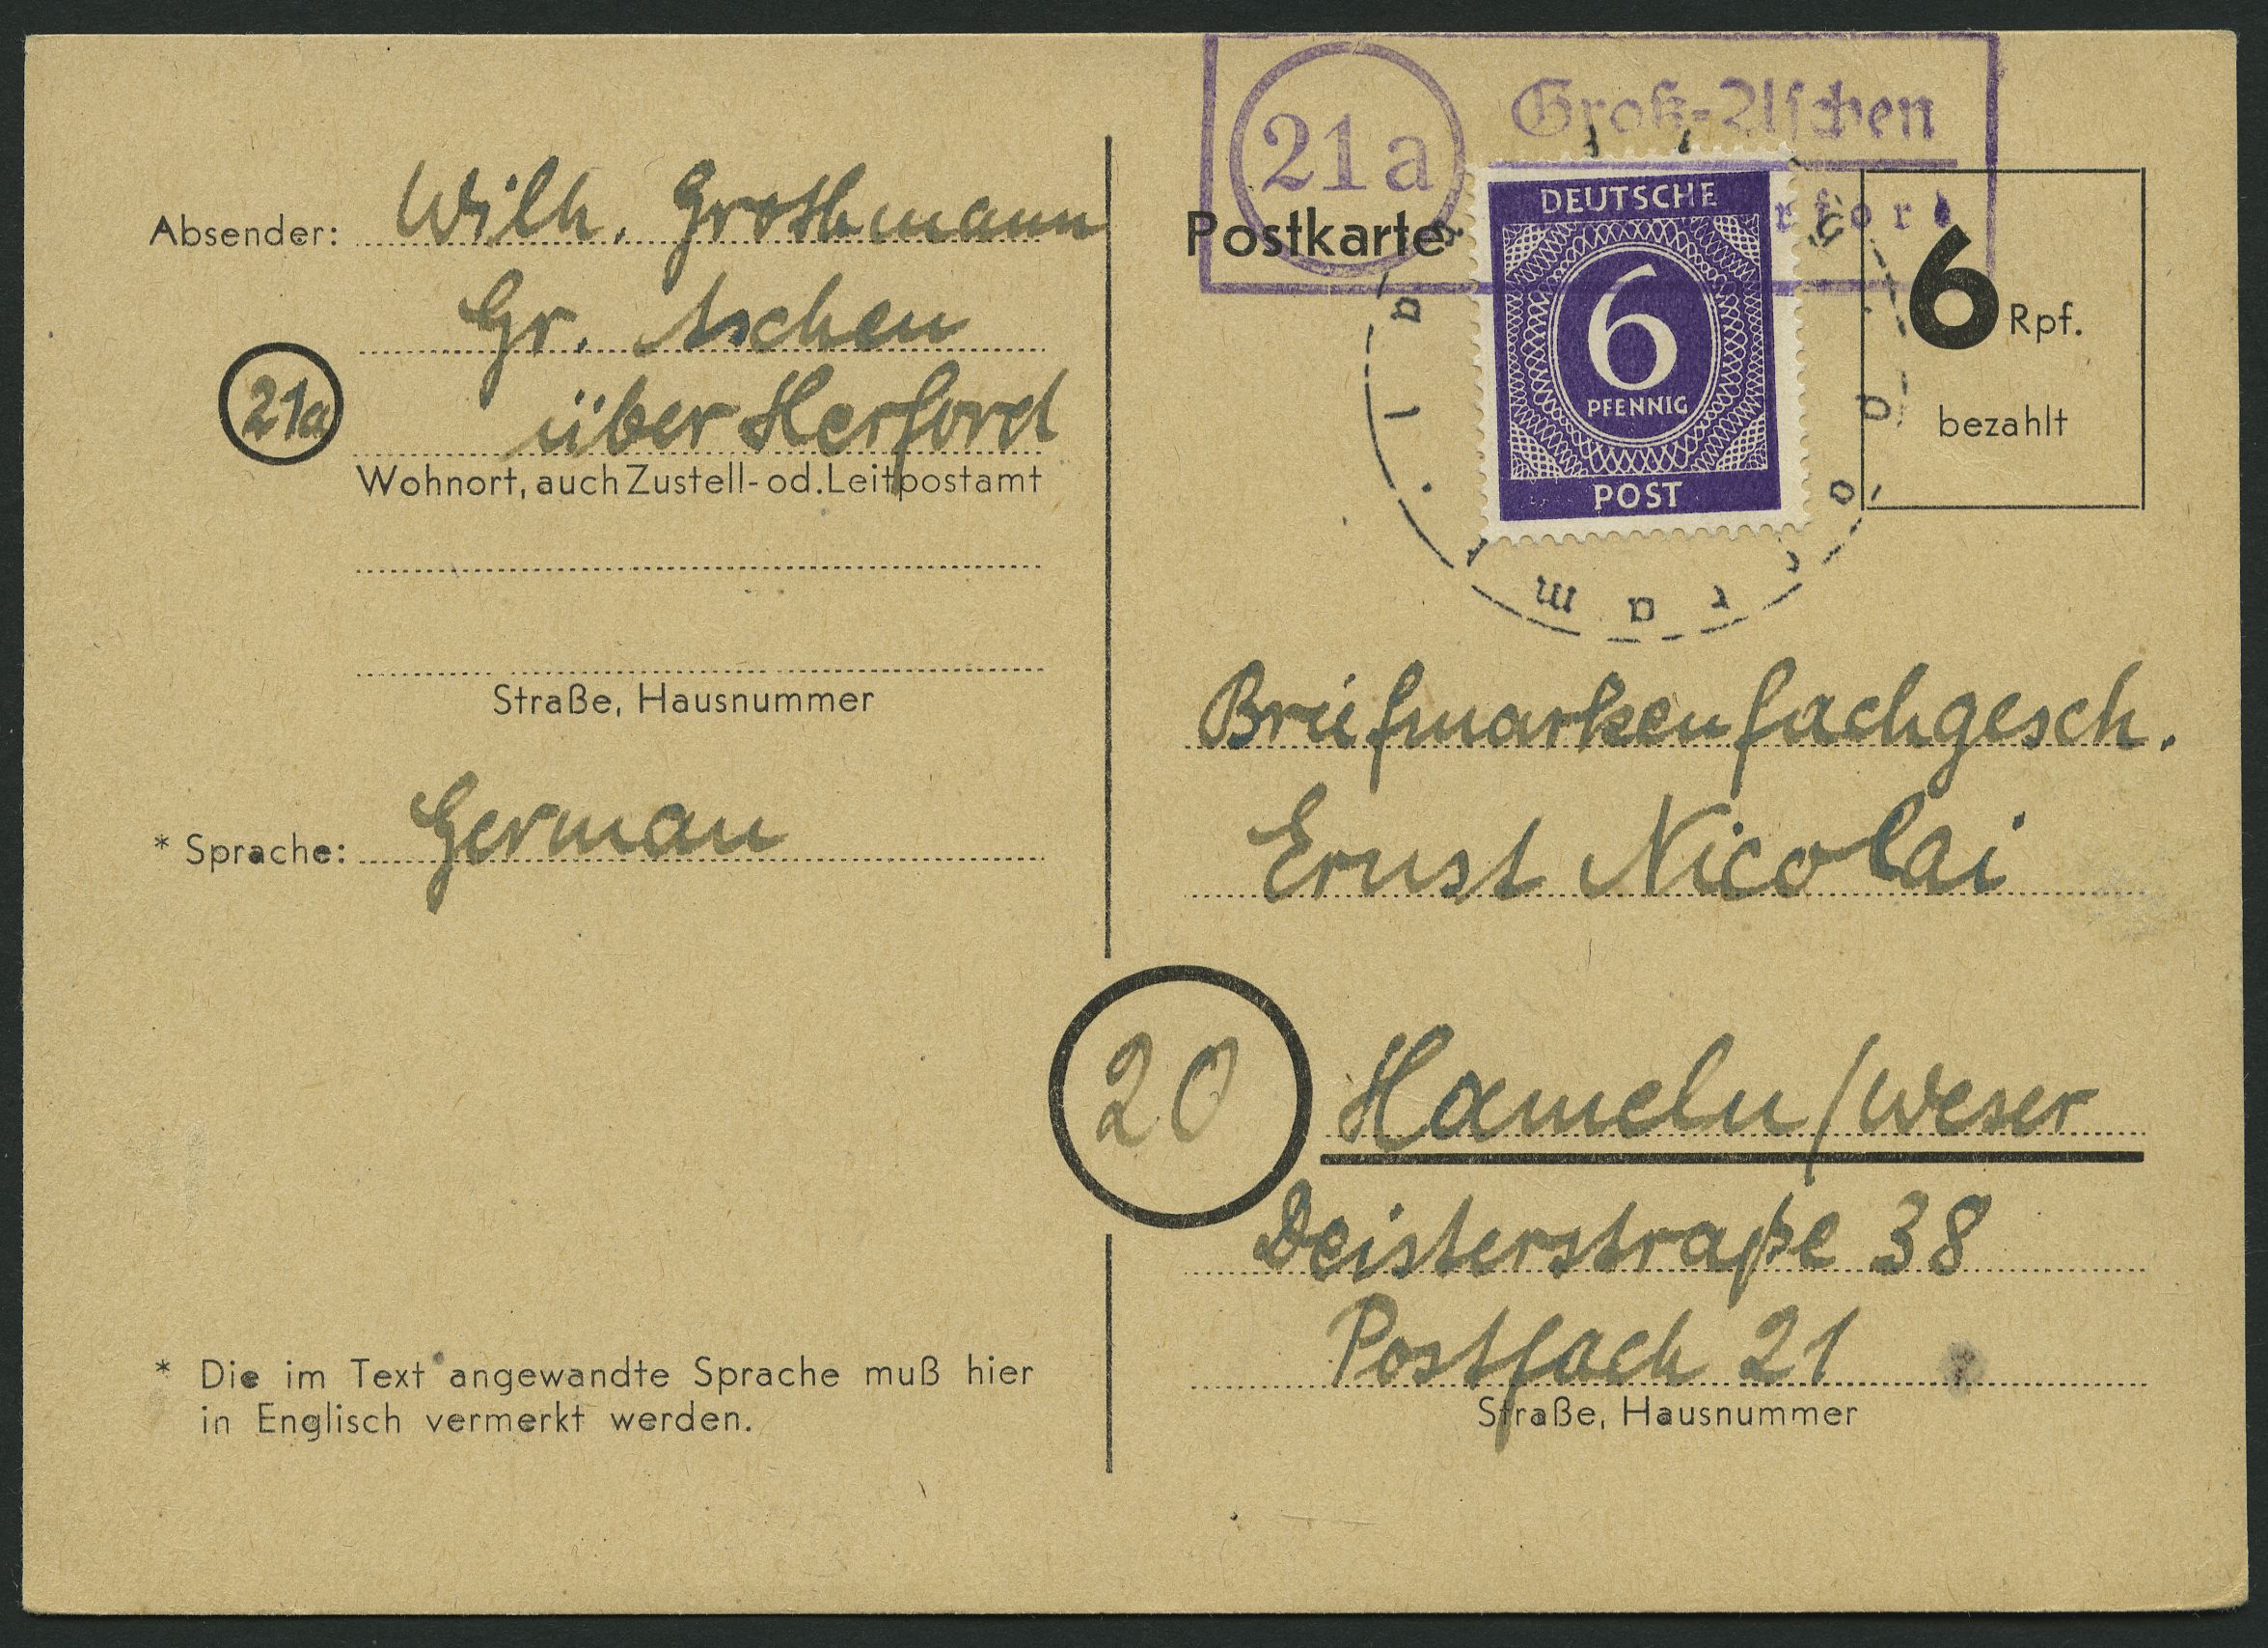 Absender: Wilh. Grothmann
Gr. Aschen
21a
über Herford
Wohnort, auch Zustell- od. Leitpostamt
Straße, Hausnummer
* Sprache: German
* Die im Text angewandte Sprache muß hier
in Englisch vermerkt werden.
21a
Groß-Aschen
Postkarte
DEUTSCHE
6
PFENNIG
POST
6 Rpf.
bezahlt
Briefmarkenfachgesch.
Ernst Nicolai
20 Hameln/Weser
Deisterstraße 38
Postfach 21
Straße, Hausnummer